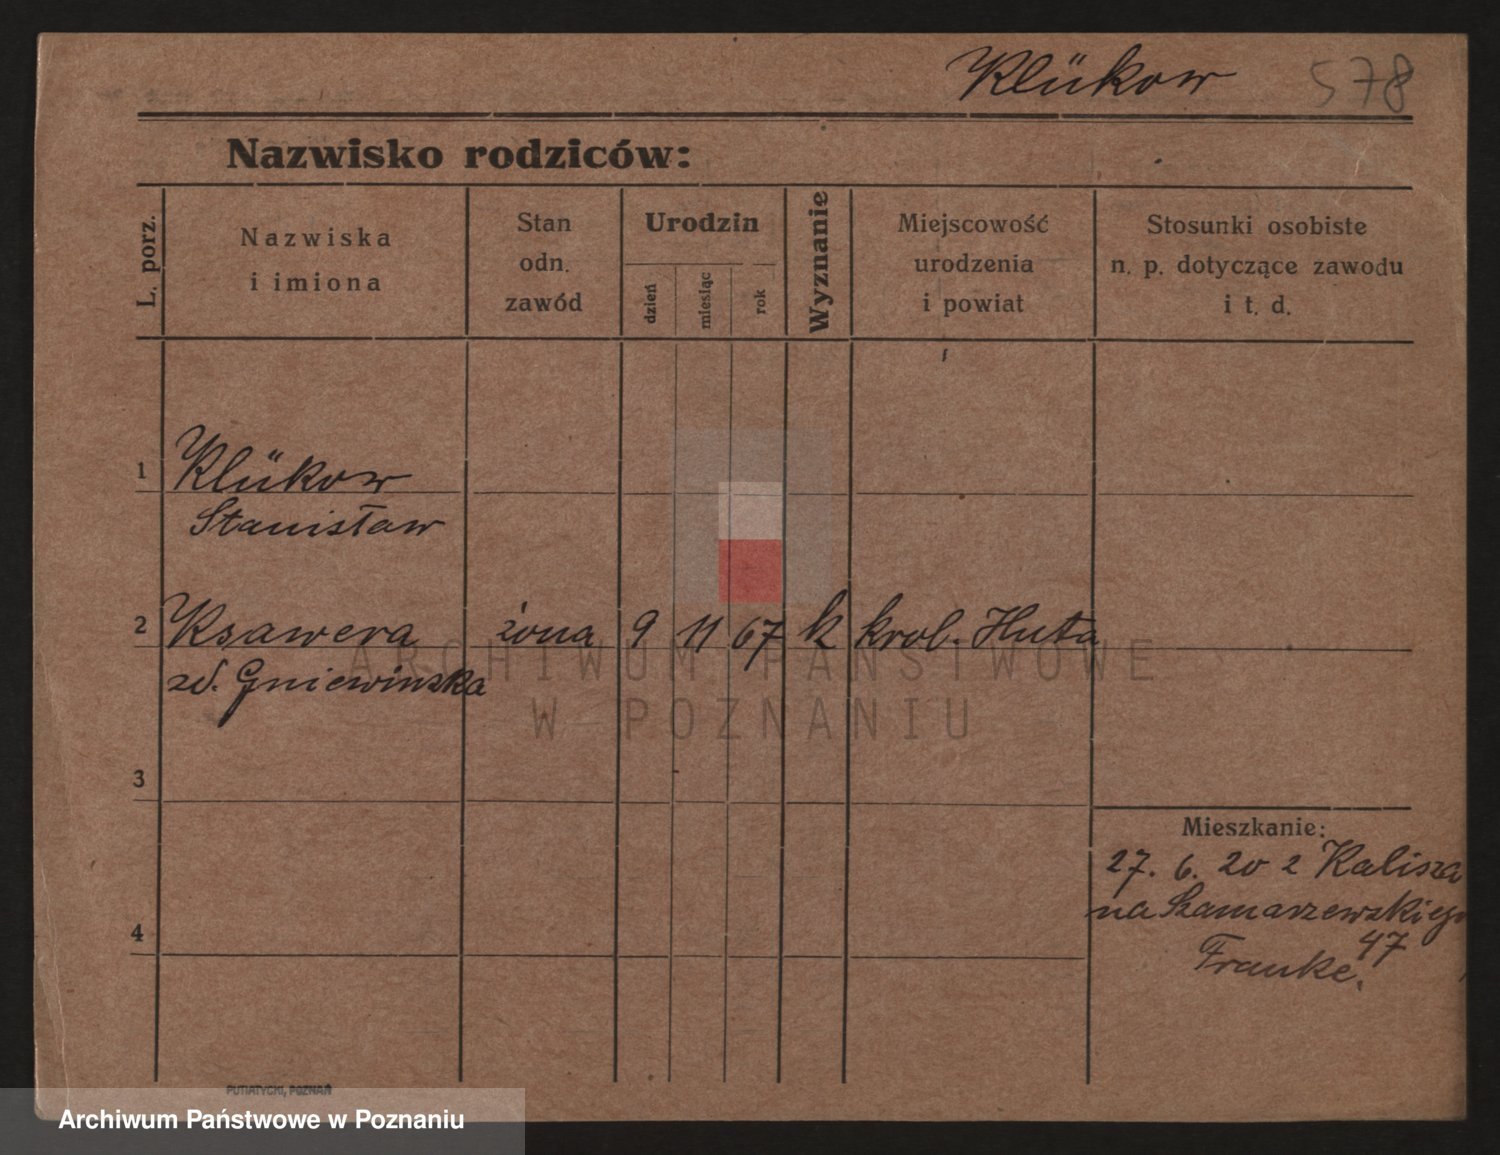 Klükow 578
Nazwisko rodziców:
L. porz.
Nazwiska
i imiona
Stan
odn.
zawód
Urodzin
dzień
miesiąc
rok
Wyznanie
Miejscowość
urodzenia
i powiat
Stosunki osobiste
n. p. dotyczące zawodu
i t. d.
1 Klükow
Stanisław
2 Ksawera żona 9 11 67 k krol. Huta
zd. Gniewinska
ARCHIWUM PAŃSTWOWE
W POZNANIU
3
Mieszkanie:
27. 6. 20 z Kalisza
na Szamarzewskiego
47
4
Franke.
PUTIATYCKI, POZNAŃ
Archiwum Państwowe w Poznaniu